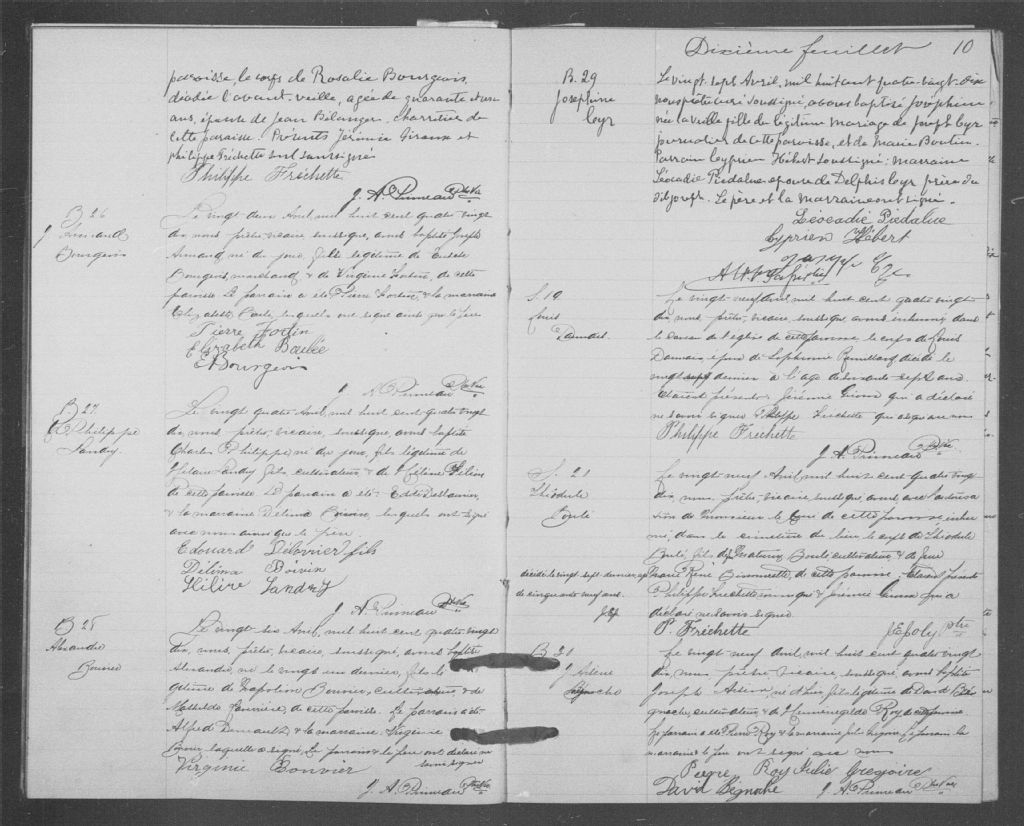 paroisse, le corps de Rosalie Bourgeois,
décédée l'avant-veille, agée de quarante et un
ans, épouse de Jean Bélanger, charretier de
cette paroisse. Présents Jérémie Giroux et
Philippe Fréchette soussigné.
Philippe Fréchette
J. A. Primeau Ptre Vic
B 26
J
Armand
Bourgeois
Le vingt deux Avril, mil huit cent quatre vingt
dix, nous, prêtre, vicaire, soussigné, avons baptisé Joseph
Armand, né du jour, fils légitime de
Bourgeois, marchand, & de Virginie Fortin, de cette
paroisse. Le parrain a été Pierre Fortin, & la marraine
Elizabeth lesquels ont signé ainsi que le père
Pierre Fortin
Elizabeth
E Bourgeois
J. A. Primeau Ptre Vic
B 27
C Philippe
Landry
Le vingt quatre Avril, mil huit cent quatre vingt
dix, nous, prêtre, vicaire, soussigné, avons baptisé
Charles Philippe, né du jour, fils légitime de
Landry, cultivateur, & de
de cette paroisse. Le parrain a été
& la marraine Délima Boivin, lesquels ont signé
avec nous ainsi que le père.
Edouard fils
Délima Boivin
Landry
J. A. Primeau Ptre Vic
B 28
Alexandre
Bouvier
Le vingt six Avril, mil huit cent quatre vingt
dix, nous, prêtre, vicaire, soussigné, avons baptisé
Alexandre, né le vingt un dernier, fils lé
gitime de Napoléon Bouvier, cultivateur, & de
Mathilde de cette paroisse. Le parrain a été
Alfred & la marraine Virginie
Bouvier, laquelle a signé, Le parrain & le père ont déclaré ne
savoir signer
Virginie Bouvier
J. A. Primeau Ptre Vic
Dixième feuillet 10
B. 29
Joséphine
Cyr
Le vingt-sept Avril, mil huit cent quatre-vingt-dix
nous prêtre curé soussigné, avons baptisé Joséphine
née la veille fille du légitime mariage de Joseph Cyr
journalier de cette paroisse, et de Marie Boutin.
Parrain Cyprien Hébert soussigné; marraine
Léocadie Piédalue épouse de Delphis Cyr frère du
dit Joseph. Le père et la marraine ont signé.
Léocadie Piédalue
Cyprien Hébert
S. 19
Louis
Damais
Le vingt-neuf Avril, mil huit cent quatre vingt
dix, nous, prêtre, vicaire, soussigné, avons inhumé dans
le caveau de l'église de cette paroisse, le corps de Louis
Damais, époux de Sophronie Remillard, décédé le
vingt sept dernier à l'âge de soixante-sept ans.
Etaient présents: Jérémie Giroux qui a déclaré
ne savoir signer & Philippe Fréchette qui a signé avec nous
Philippe Fréchette
J. A. Primeau Ptre Vic
S. 21
Théodule
Boulé
Le vingt-neuf Avril, mil huit cent quatre vingt
dix, nous, prêtre, vicaire, soussigné, avons avec l'autorisa
tion de Monsieur le Curé de cette paroisse, inhu
mé, dans le cimetière du lieu le corps de Théodule
Boulé, fils de Boulé cultivateur, & de feue
Marie Renée Bissonnette, de cette paroisse,
décédé le vingt-sept dernier, agé
de cinquante neuf ans.
Philippe Fréchette soussigné & Jérémie Giroux qui a
déclaré ne savoir signer
P. Fréchette
J E Joly ptre
B 21
J Arsène
Régnoche
Le vingt neuf Avril, mil huit cent quatre vingt
dix, nous, prêtre, vicaire, soussigné, avons baptisé
Joseph Arsène, né d'hier, fils légitime de David Ré
gnoche, cultivateur, & de Herménégilde Roy de cette paroisse.
Le parrain a été Pierre Roy & la marraine Julie Grégoire. Le parrain la
marraine le père ont signé avec nous
Pierre Roy Julie Gregoire
David Régnoche
J. A. Primeau Ptre Vic